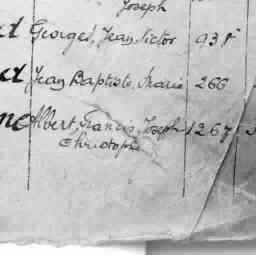 Joseph
et Georges, Jean, Victor 93
Jean Baptiste, Marie 266
Albert, Francis, Joseph 1267
Christophe